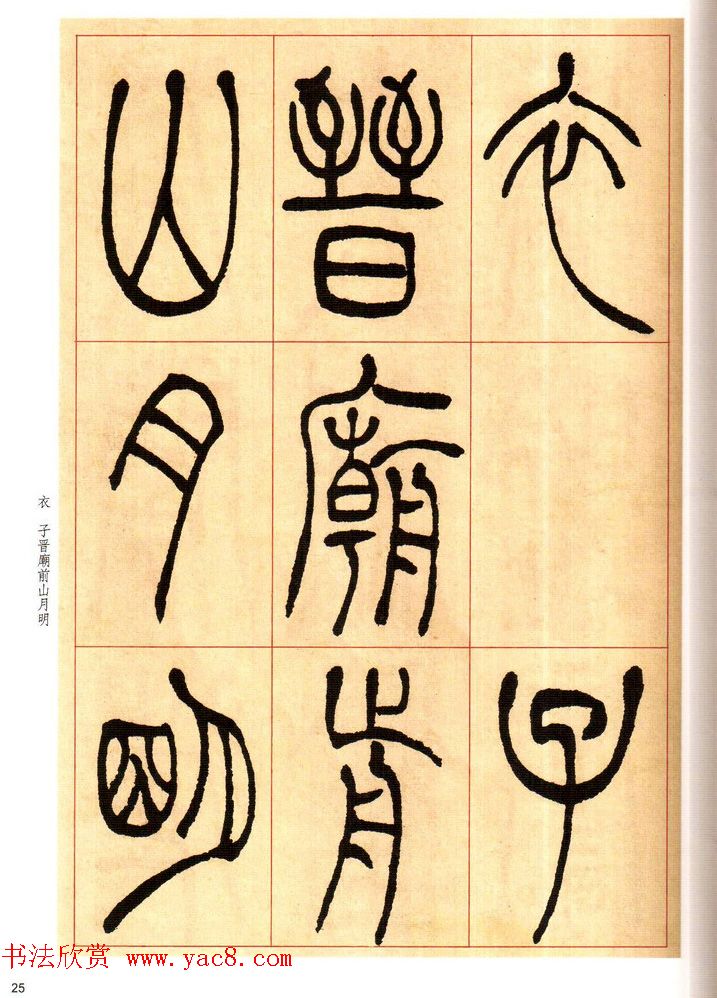 衣 子
晋廟前
山月明
衣 子晋廟前山月明
书法欣赏 www.yac8.com
25